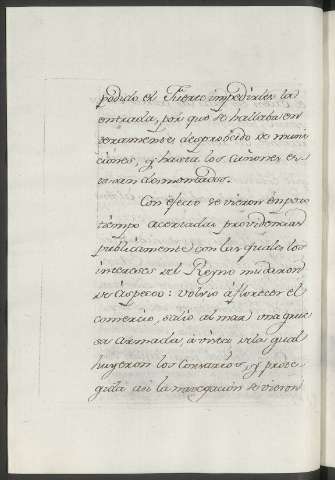 podido el Fuerte impedirles la
entrada, por que se hallaba en
teramente desprobeido de muni
ciones, y hasta los cañones es
taban desmontados.
Con efecto se vieron en poco
tiempo acertadas providencias
publicamente con las quales los
intereses del Reyno mudaron
de aspecto: volvio à florecer el
comercio, salio al mar una grue
sa armada, à vista de la qual
huyeron los Corsarios, y prote
gida asi la navegacion se vieron